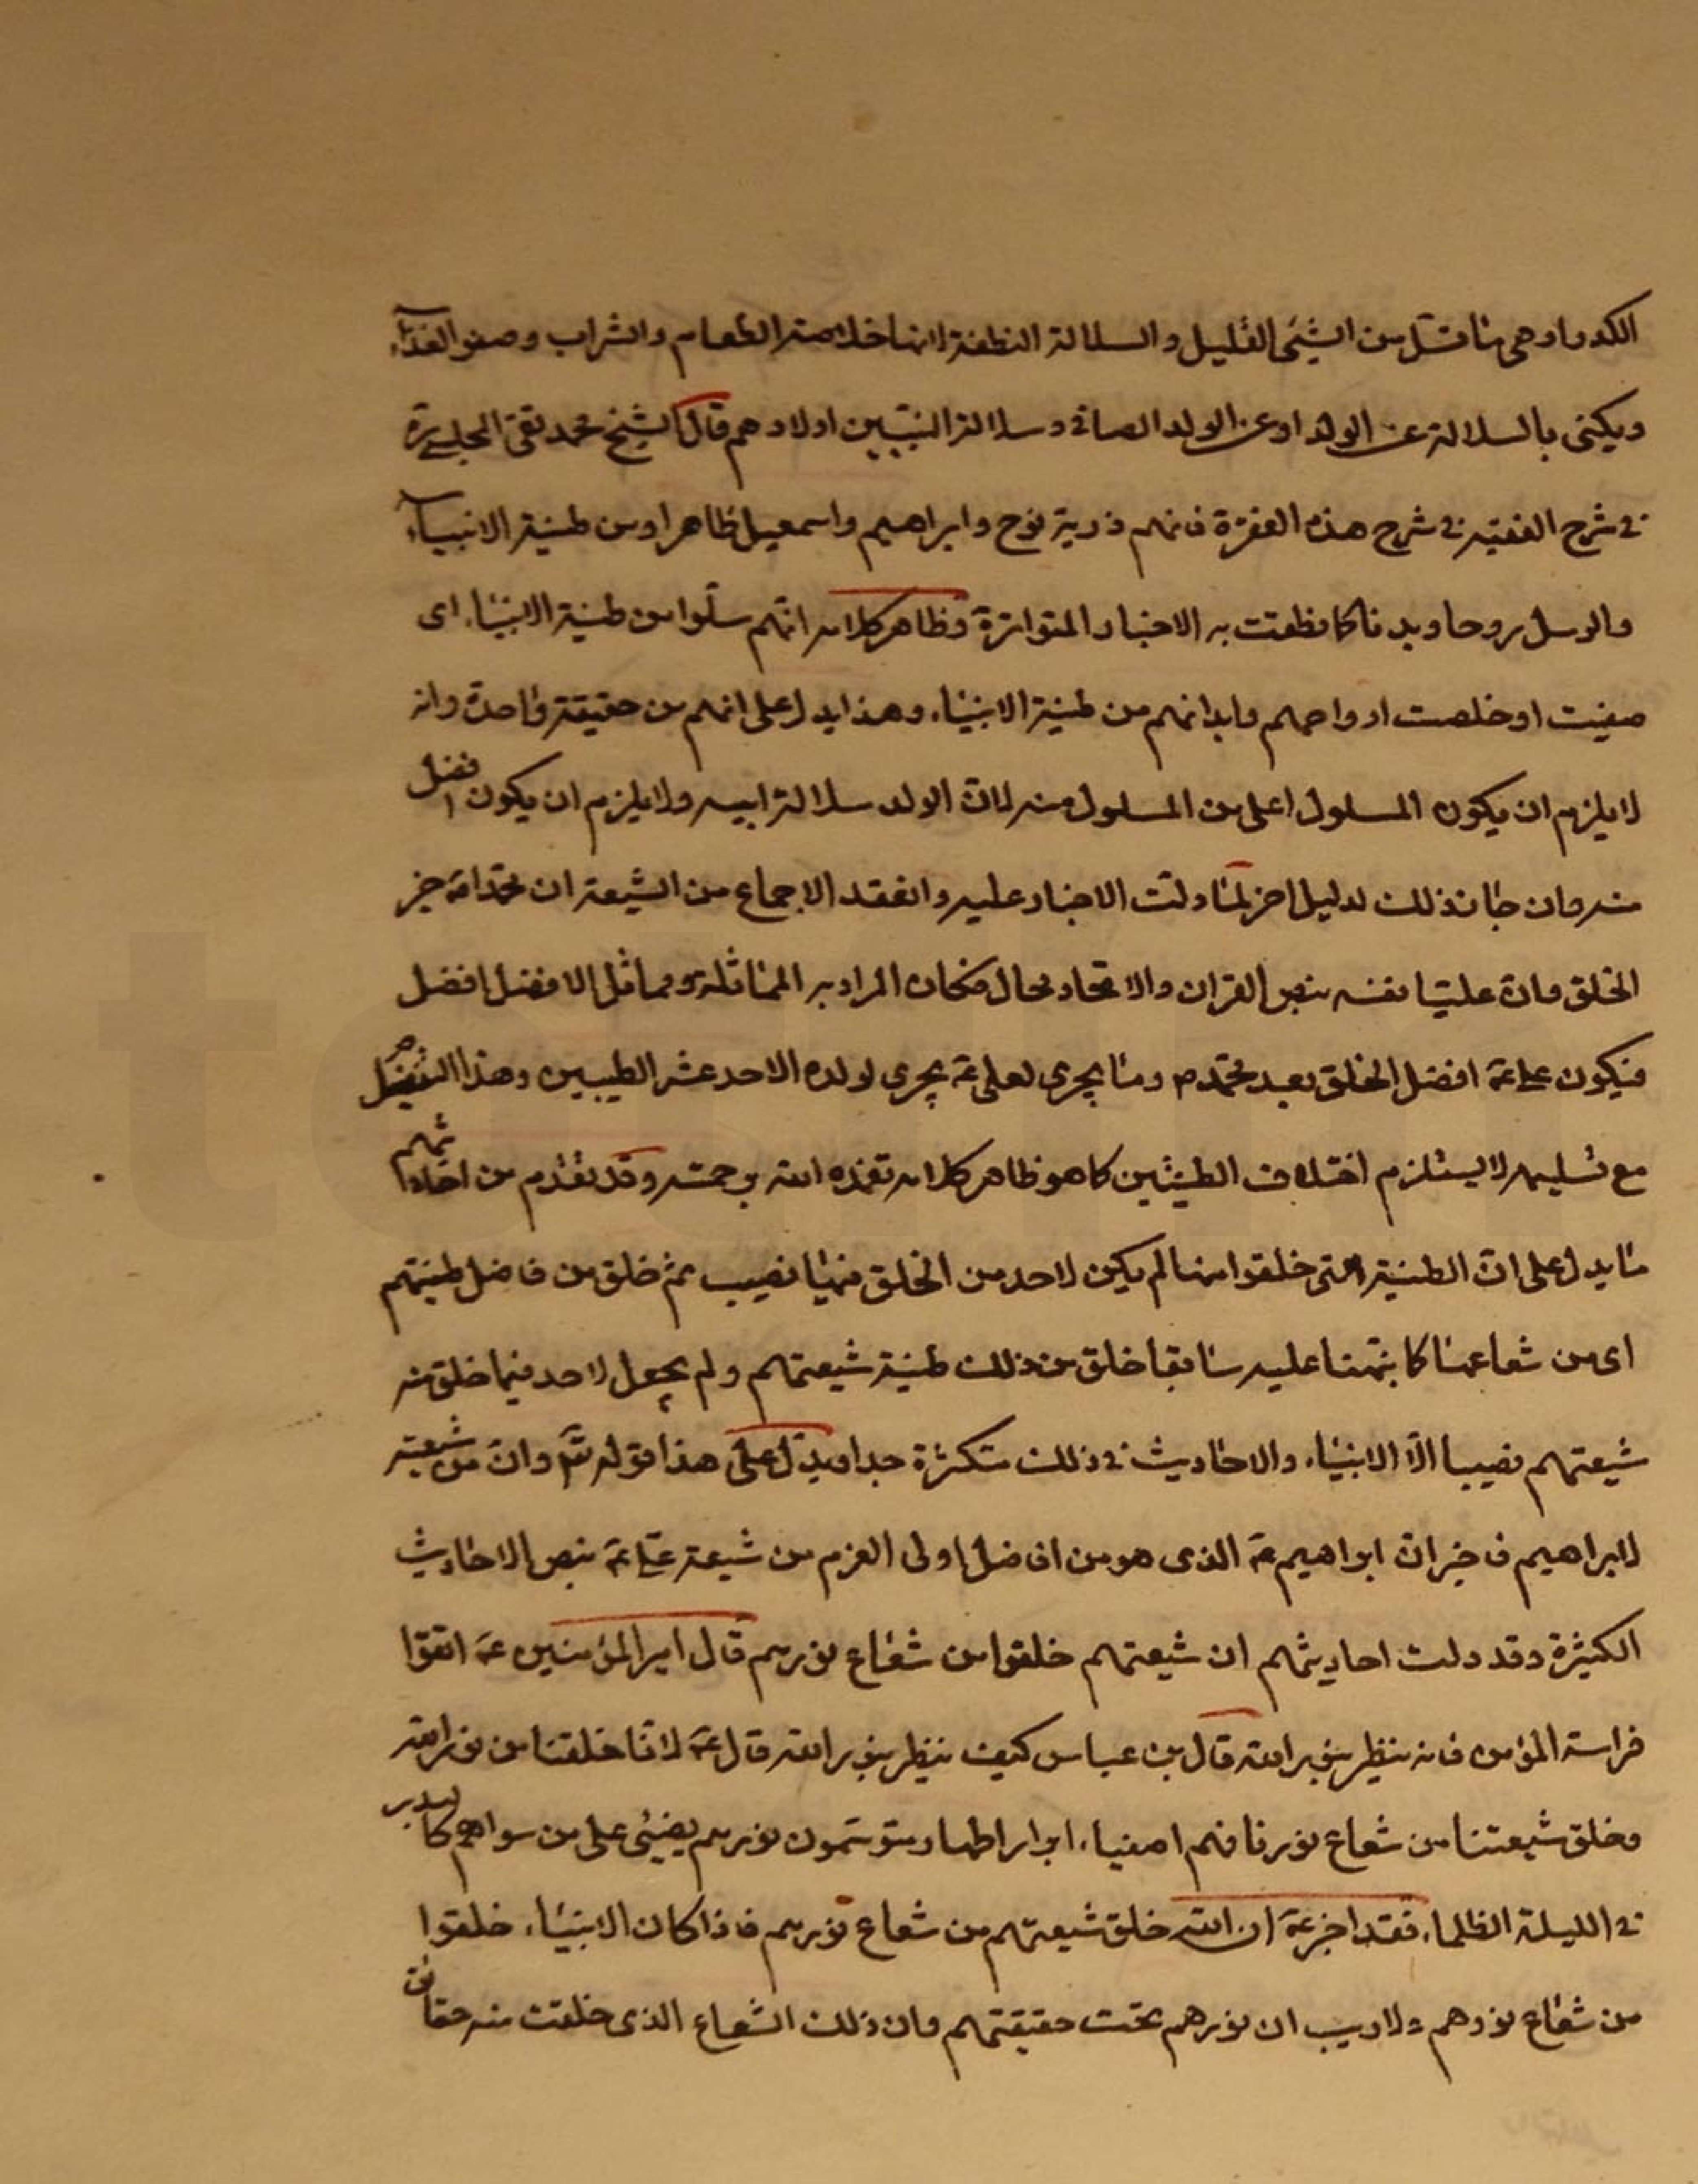 الكدر او هي ما قل من الشئ القليل و السلالة النطفة لانها خلاصة الطعام والشراب وصفو الغذاء
ويكنى بالسلالة عن الولد او عن الولد الصافى وسلالة النبيين اولادهم قال الشيخ محمد تقى المجلسى ره
فى شرح الفقيه فى شرح هذه الفقرة فانهم ذرية نوح وابراهيم واسمعيل ظاهرا ومن طينة الانبياء
والرسل روحا وبدنا كما نطقت به الاخبار المتواترة وظاهر كلامه انهم سلّوا من طينة الانبياء اى
صفيت او خلصت ارواحهم وابدانهم من طينة الانبياء وهذا يدل على انهم من حقيقة واحدة وانه
لا يلزم ان يكون المسلول اعلى من المسلول منه لان الولد سلالة ابيه ولا يلزم ان يكون افضل
منه وان جاز ذلك لدليل اخر لما دلت الاخبار عليه وانعقد الاجماع من الشيعة ان محمدا ص خير
الخلق وان عليا نفسه بنص القران والاتحاد محال فكان المراد به المماثلة ومماثل الافضل افضل
فيكون على ع افضل الخلق بعد محمد ص وما يجرى لعلى ع يجرى لولده الاحد عشر الطيبين وهذا التفضيل
مع تسليمه لا يستلزم اختلاف الطينتين كما هو ظاهر كلامه تغمده الله برحمته وقد تقدم من احاديثهم
ما يدل على ان الطينة التى خلقوا منها لم يكن لاحد من الخلق منها نصيب ثم خلق من فاضل طينتهم
اى من شعاعها كما نبهنا عليه سابقا خلق من ذلك طينة شيعتهم ولم يجعل لاحد فيما خلق منه
شيعتهم نصيبا الّا الانبياء والاحاديث فى ذلك متكثرة جدا ويدل على هذا قوله تعالى وان من شيعته
لابراهيم فاخبر ان ابراهيم ع الذى هو من افاضل اولى العزم من شيعة على ع بنص الاحاديث
الكثيرة وقد دلت احاديثهم ان شيعتهم خلقوا من شعاع نورهم قال امير المؤمنين ع اتقوا
فراسة المؤمن فانه ينظر بنور الله قال بن عباس كيف ينظر بنور الله قال ع لانا خلقنا من نور الله
وخلق شيعتنا من شعاع نورنا فهم اصفياء ابرار اطهار متوسمون نورهم يضيئ على من سواهم كالبدر
فى الليلة الظلماء فقد اخبر ع ان الله خلق شيعتهم من شعاع نورهم فاذا كان الانبياء خلقوا
من شعاع نورهم ولا ريب ان نورهم تحت حقيقتهم وان ذلك الشعاع الذى خلقت منه حقائق